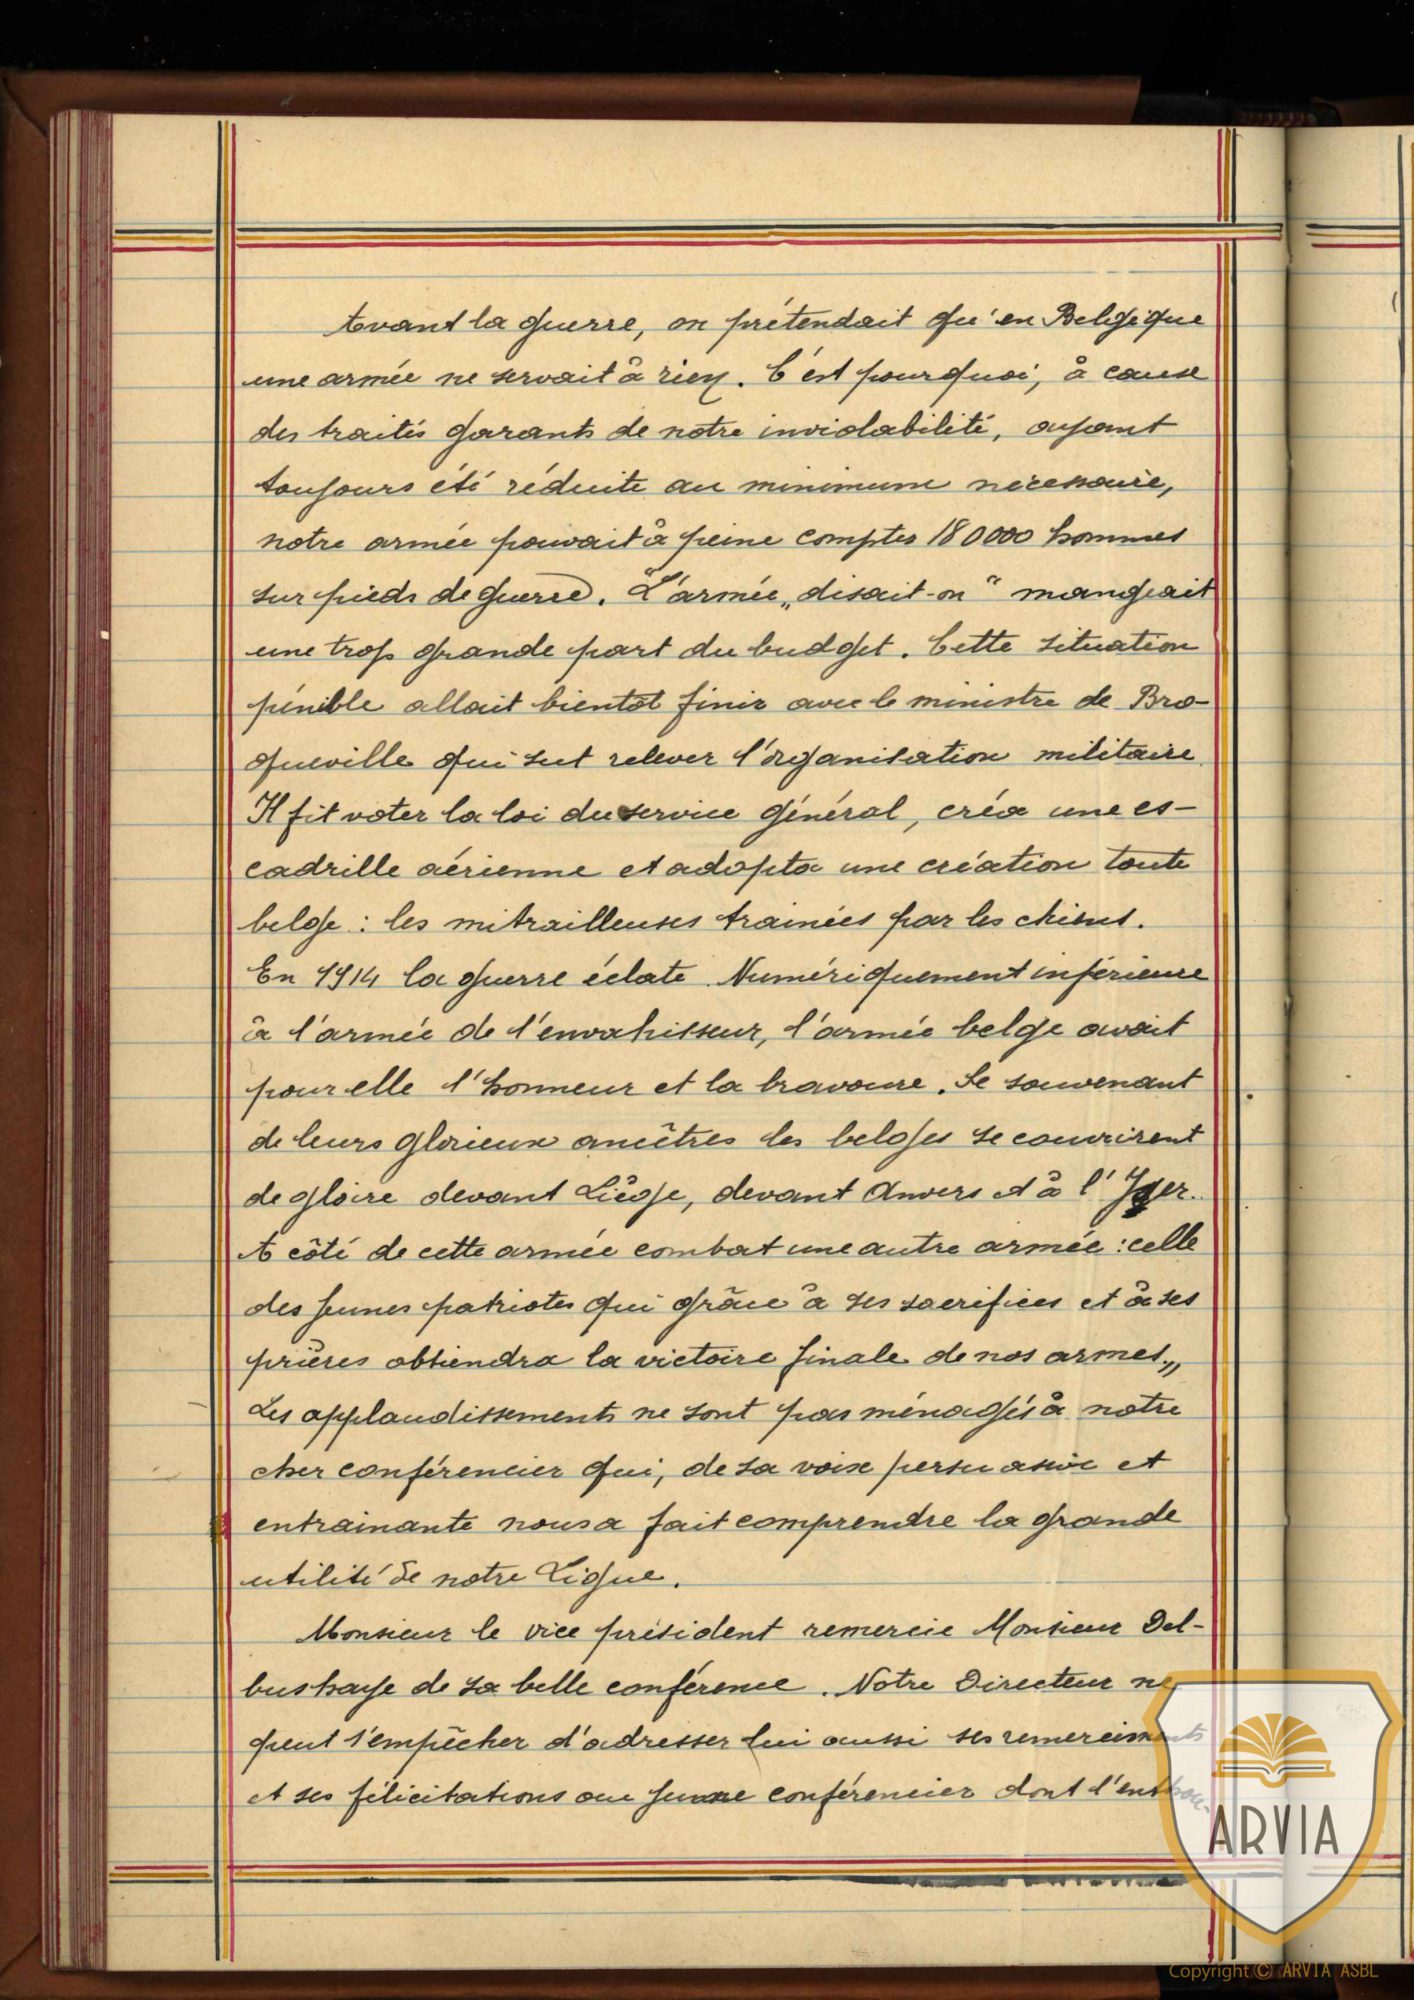 Avant la guerre, on prétendait qu'en Belgique
une armée ne servait à rien. C'est pourquoi, à cause
des traités garants de notre inviolabilité, ayant
toujours été réduite au minimum nécessaire,
notre armée pouvait à peine compter 180000 hommes
sur pieds de guerre. "L'armée „disait-on" mangeait
une trop grande part du budget. Cette situation
pénible allait bientôt finir avec le ministre de Bro-
queville qui sut relever l'organisation militaire.
Il fit voter la loi du service général, créa une es-
cadrille aérienne et adopta une création toute
belge : les mitrailleuses trainées par les chiens.
En 1914 la guerre éclate. Numériquement inférieure
à l'armée de l'envahisseur, l'armée belge avait
pour elle l'honneur et la bravoure. Se souvenant
de leurs glorieux ancêtres les belges se couvrirent
de gloire devant Liège, devant Anvers et à l'Yser.
A côté de cette armée combat une autre armée : celle
des jeunes patriotes qui grâce à ses sacrifices et à ses
prières obtiendra la victoire finale de nos armes.„
Les applaudissements ne sont pas ménagés à notre
cher conférencier qui, de sa voix persuasive et
entrainante nous a fait comprendre la grande
utilité de notre Ligue.
Monsieur le vice président remercie Monsieur Del-
bushaye de sa belle conférence. Notre Directeur ne
peut s'empêcher d'adresser lui aussi ses remerciments
et ses félicitations au jeune conférencier dont l'enthou-
ARVIA
Copyright © ARVIA ASBL